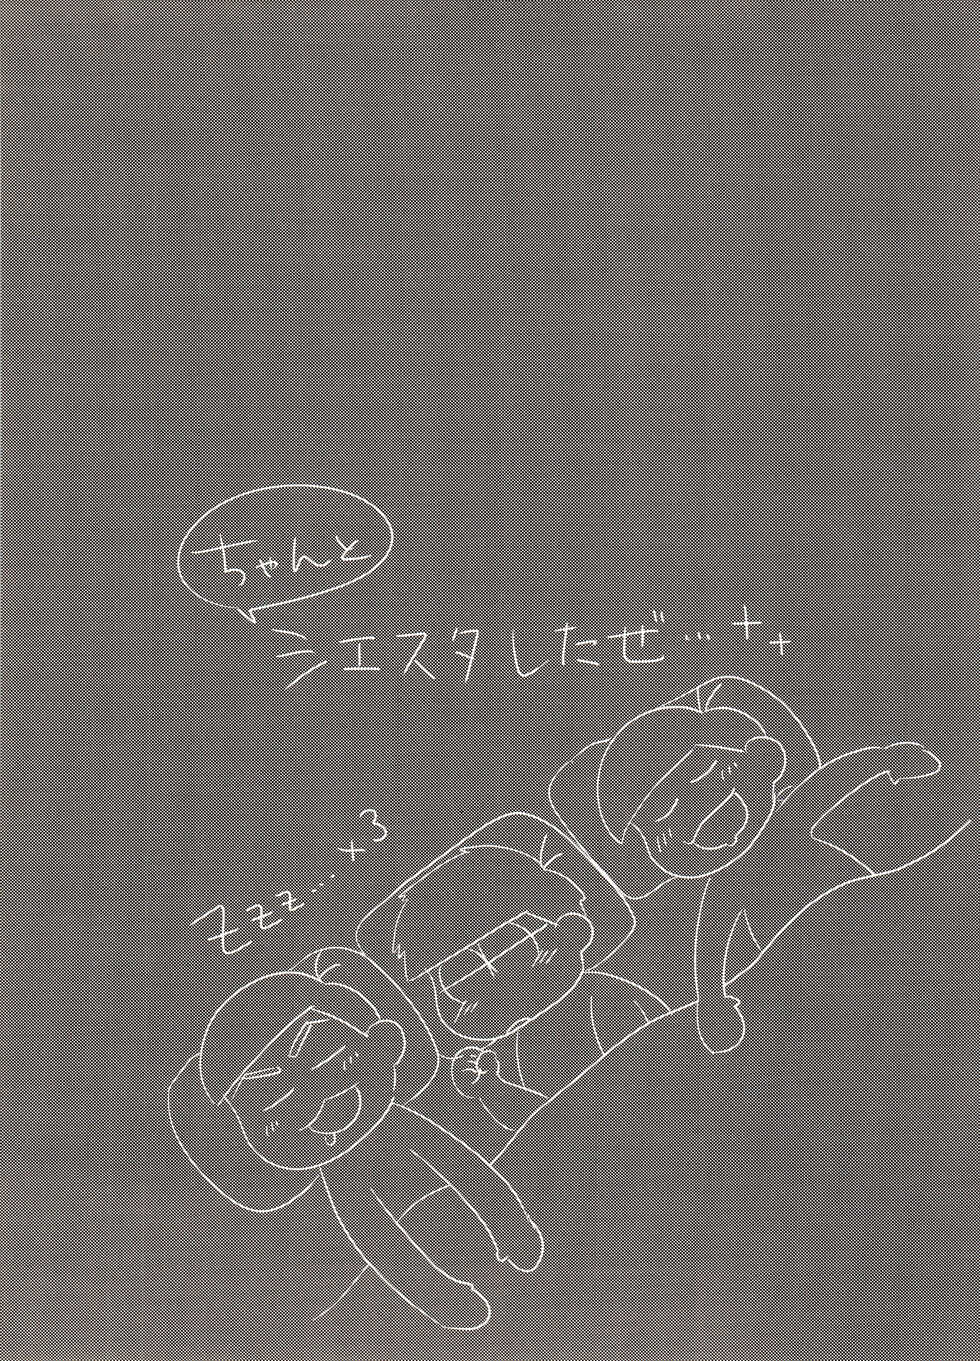 ちゃんと
シエスタしたぜ…++
zzz…×3